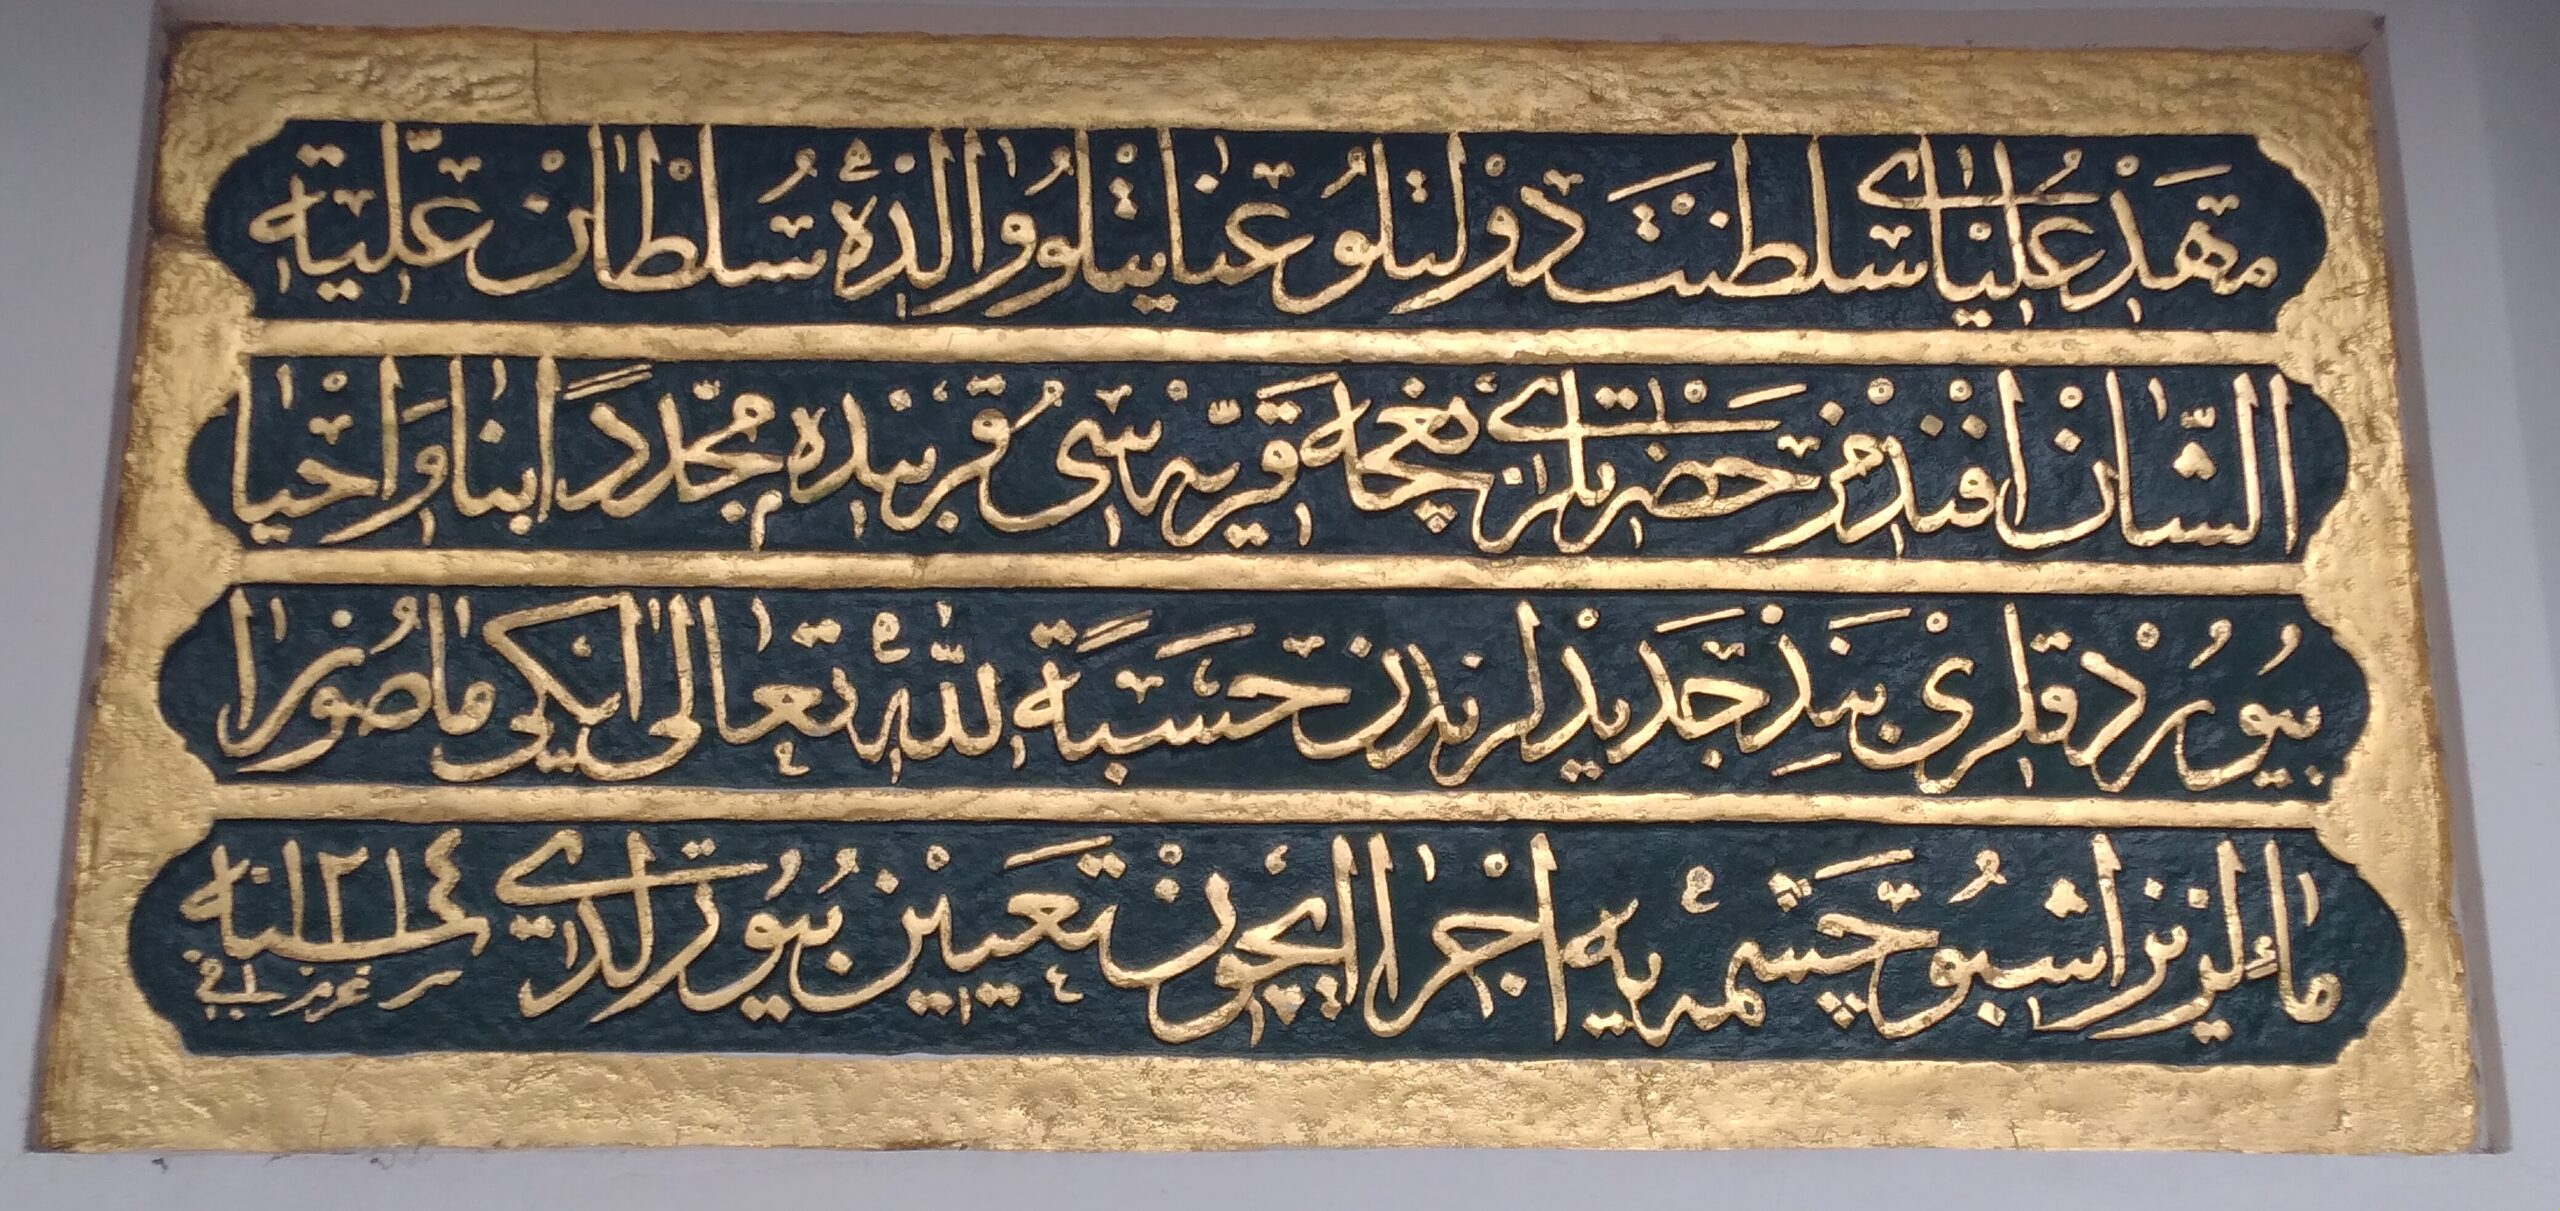 مهد علیای سلطنت دولتلو عنایتلو والده سلطان علیة
الشان افندمز حضرتلری مغجمه قریه سی قربنده مجددا ابنا و احیا
بیوردقلری بند جدیدلرندن حسبة لله تعالی ایکی ماصوره
ماء لذیذ اشبو چشمه یه اجرا ایچون تعیین بیورلدی سنه ١٢١٤